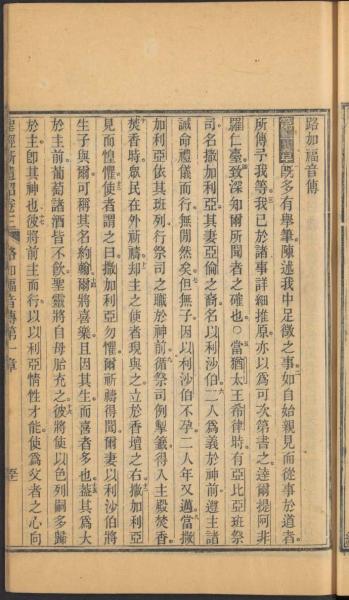 路加福音傳
第一章既多有舉筆陳述我中足徵之事如自始親見而從事於道者
所傳予我等我已於諸事詳細推原亦以為可次第書之達爾提阿非
羅仁臺致深知爾所聞者之確也○當猶太王希律時有亞比亞班祭
司名撒加利亞其妻亞倫之裔名以利沙伯二人為義於神前遵主諸
誡命禮儀而行無間然矣但無子因以利沙伯不孕二人年又邁當撒
加利亞依其班列行祭司之職於神前循祭司例掣籤得入主殿焚香
焚香時眾民在外祈禱却主之使者現與之立於香壇之右撒加利亞
見而惶懼使者謂之曰撒加利亞勿懼爾祈禱得聞爾妻以利沙伯將
生子與爾可稱其名約翰爾將喜樂且因其生而喜者多也蓋其為大
於主前葡萄諸酒皆不飲聖靈將自母胎充之彼將使以色列嗣多歸
於主即其神也彼將前主而行以以利亞情性才能使為父者之心向
聖經新遺詔卷三 路加福音傳第一章